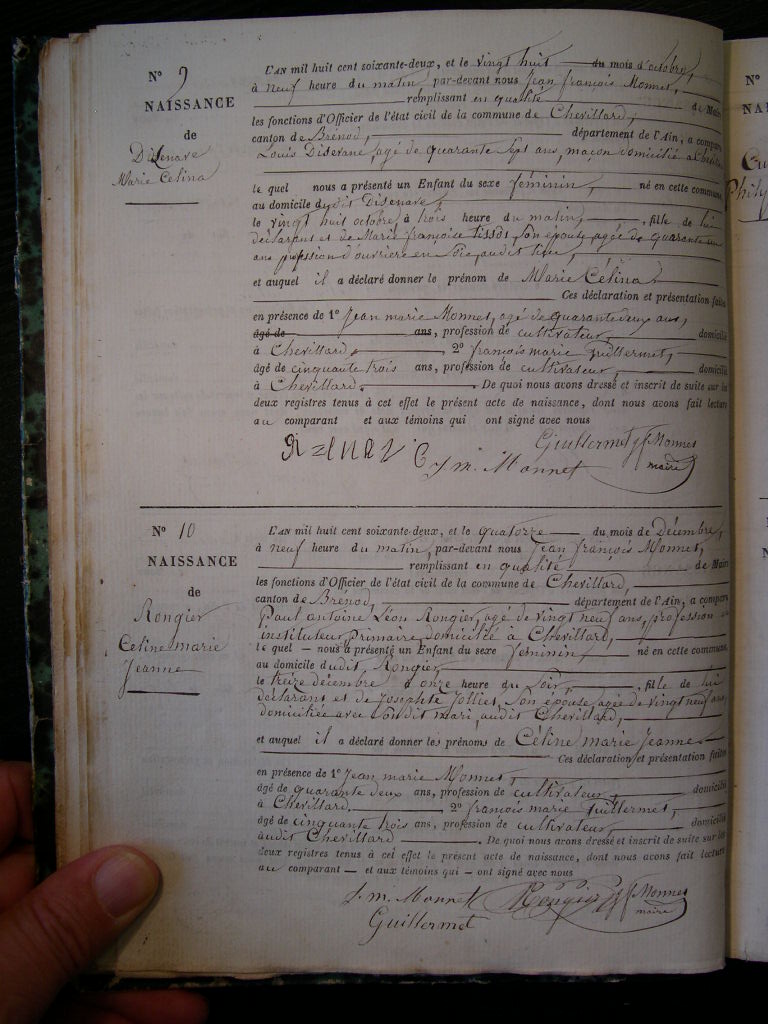 N° 9
NAISSANCE
de
Disenave
Marie Célina
L'AN mil huit cent soixante-deux, et le vingt huit du mois d'octobre,
à neuf heure du matin, par-devant nous Jean françois Monnet,
remplissant en qualité de Maire
les fonctions d'Officier de l'état civil de la commune de Chevillard,
canton de Brénod, département de l'Ain, a comparu
Louis Disenave, agé de quarante sept ans, maçon domicilié à
le quel nous a présenté un Enfant du sexe féminin, né en cette commune
au domicile dudit Disenave,
le vingt huit octobre, à trois heure du matin, fille de lui
déclarant et de Marie françoise Tissot, son épouse, agée de quarante
ans profession d'ouvrière en audit lieu,
et auquel il a déclaré donner le prénom de Marie Célina.
Ces déclaration et présentation faites
en présence de 1° Jean marie Monnet, agé de quarante deux ans,
âgé de ans, profession de cultivateur, domicilié
à Chevillard, 2° françois marie Guillermet,
âgé de cinquante trois ans, profession de cultivateur, domicilié
à Chevillard. De quoi nous avons dressé et inscrit de suite sur les
deux registres tenus à cet effet le présent acte de naissance, dont nous avons fait lecture
au comparant et aux témoins qui ont signé avec nous
Guillermet jf Monnet
J. m. Monnet maire
N° 10
NAISSANCE
de
Rongier
Céline marie
Jeanne
L'AN mil huit cent soixante-deux, et le quatorze du mois de Décembre,
à neuf heure du matin, par-devant nous Jean françois Monnet,
remplissant en qualité de Maire
les fonctions d'Officier de l'état civil de la commune de Chevillard,
canton de Brénod, département de l'Ain, a comparu
Paul antoine Léon Rongier, agé de vingt neuf ans, profession
instituteur Primaire, domicilié à Chevillard,
le quel nous a présenté un Enfant du sexe féminin, né en cette commune
au domicile dudit Rongier,
le treize décembre à onze heure du soir, fille de lui
déclarant et de Josephte Jolliet, son épouse, agée de vingt neuf ans
domiciliée avec sondit mari, audit Chevillard,
et auquel il a déclaré donner les prénoms de Céline marie Jeanne
Ces déclaration et présentation faites
en présence de 1° Jean marie Monnet,
âgé de quarante deux ans, profession de cultivateur, domicilié
à Chevillard. 2° françois marie Guillermet,
âgé de cinquante trois ans, profession de cultivateur, domicilié
audit Chevillard. De quoi nous avons dressé et inscrit de suite sur les
deux registres tenus à cet effet le présent acte de naissance, dont nous avons fait lecture
au comparant et aux témoins qui ont signé avec nous
J. m. Monnet Rongier jf Monnet
Guillermet maire
N°